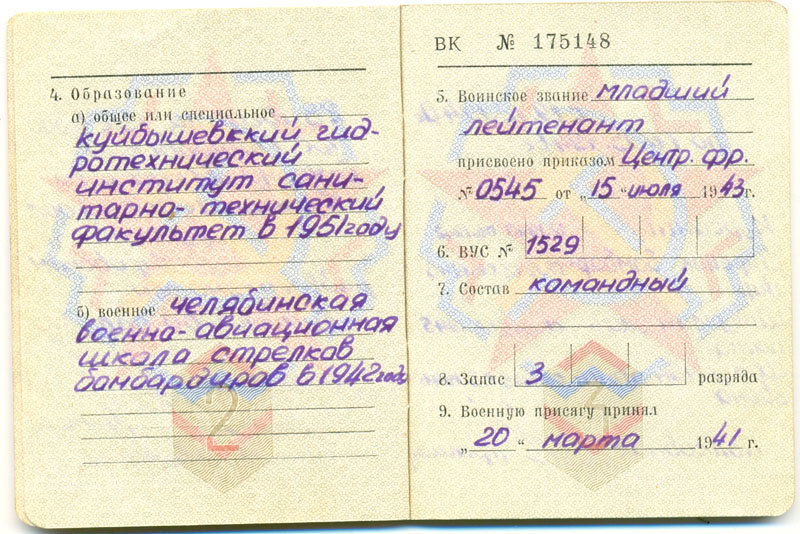 4. Образование
а) общее или специальное
куйбышевккий гид-
ротехнический
институт сани-
тарно-технический
факультет в 1951 году
б) военное челябинская
военно-авиационная
школа стрелков
банбардиров в 1942 году
2
ВК № 175148
5. Воинское звание младший
лейтенант
присвоено приказом Центр. фр.
№ 0545 от „15“ июля 1943 г.
6. ВУС № 1529
7. Состав командный
8. Запас 3 разряда
9. Военную присягу принял
„20“ марта 1941 г.
3